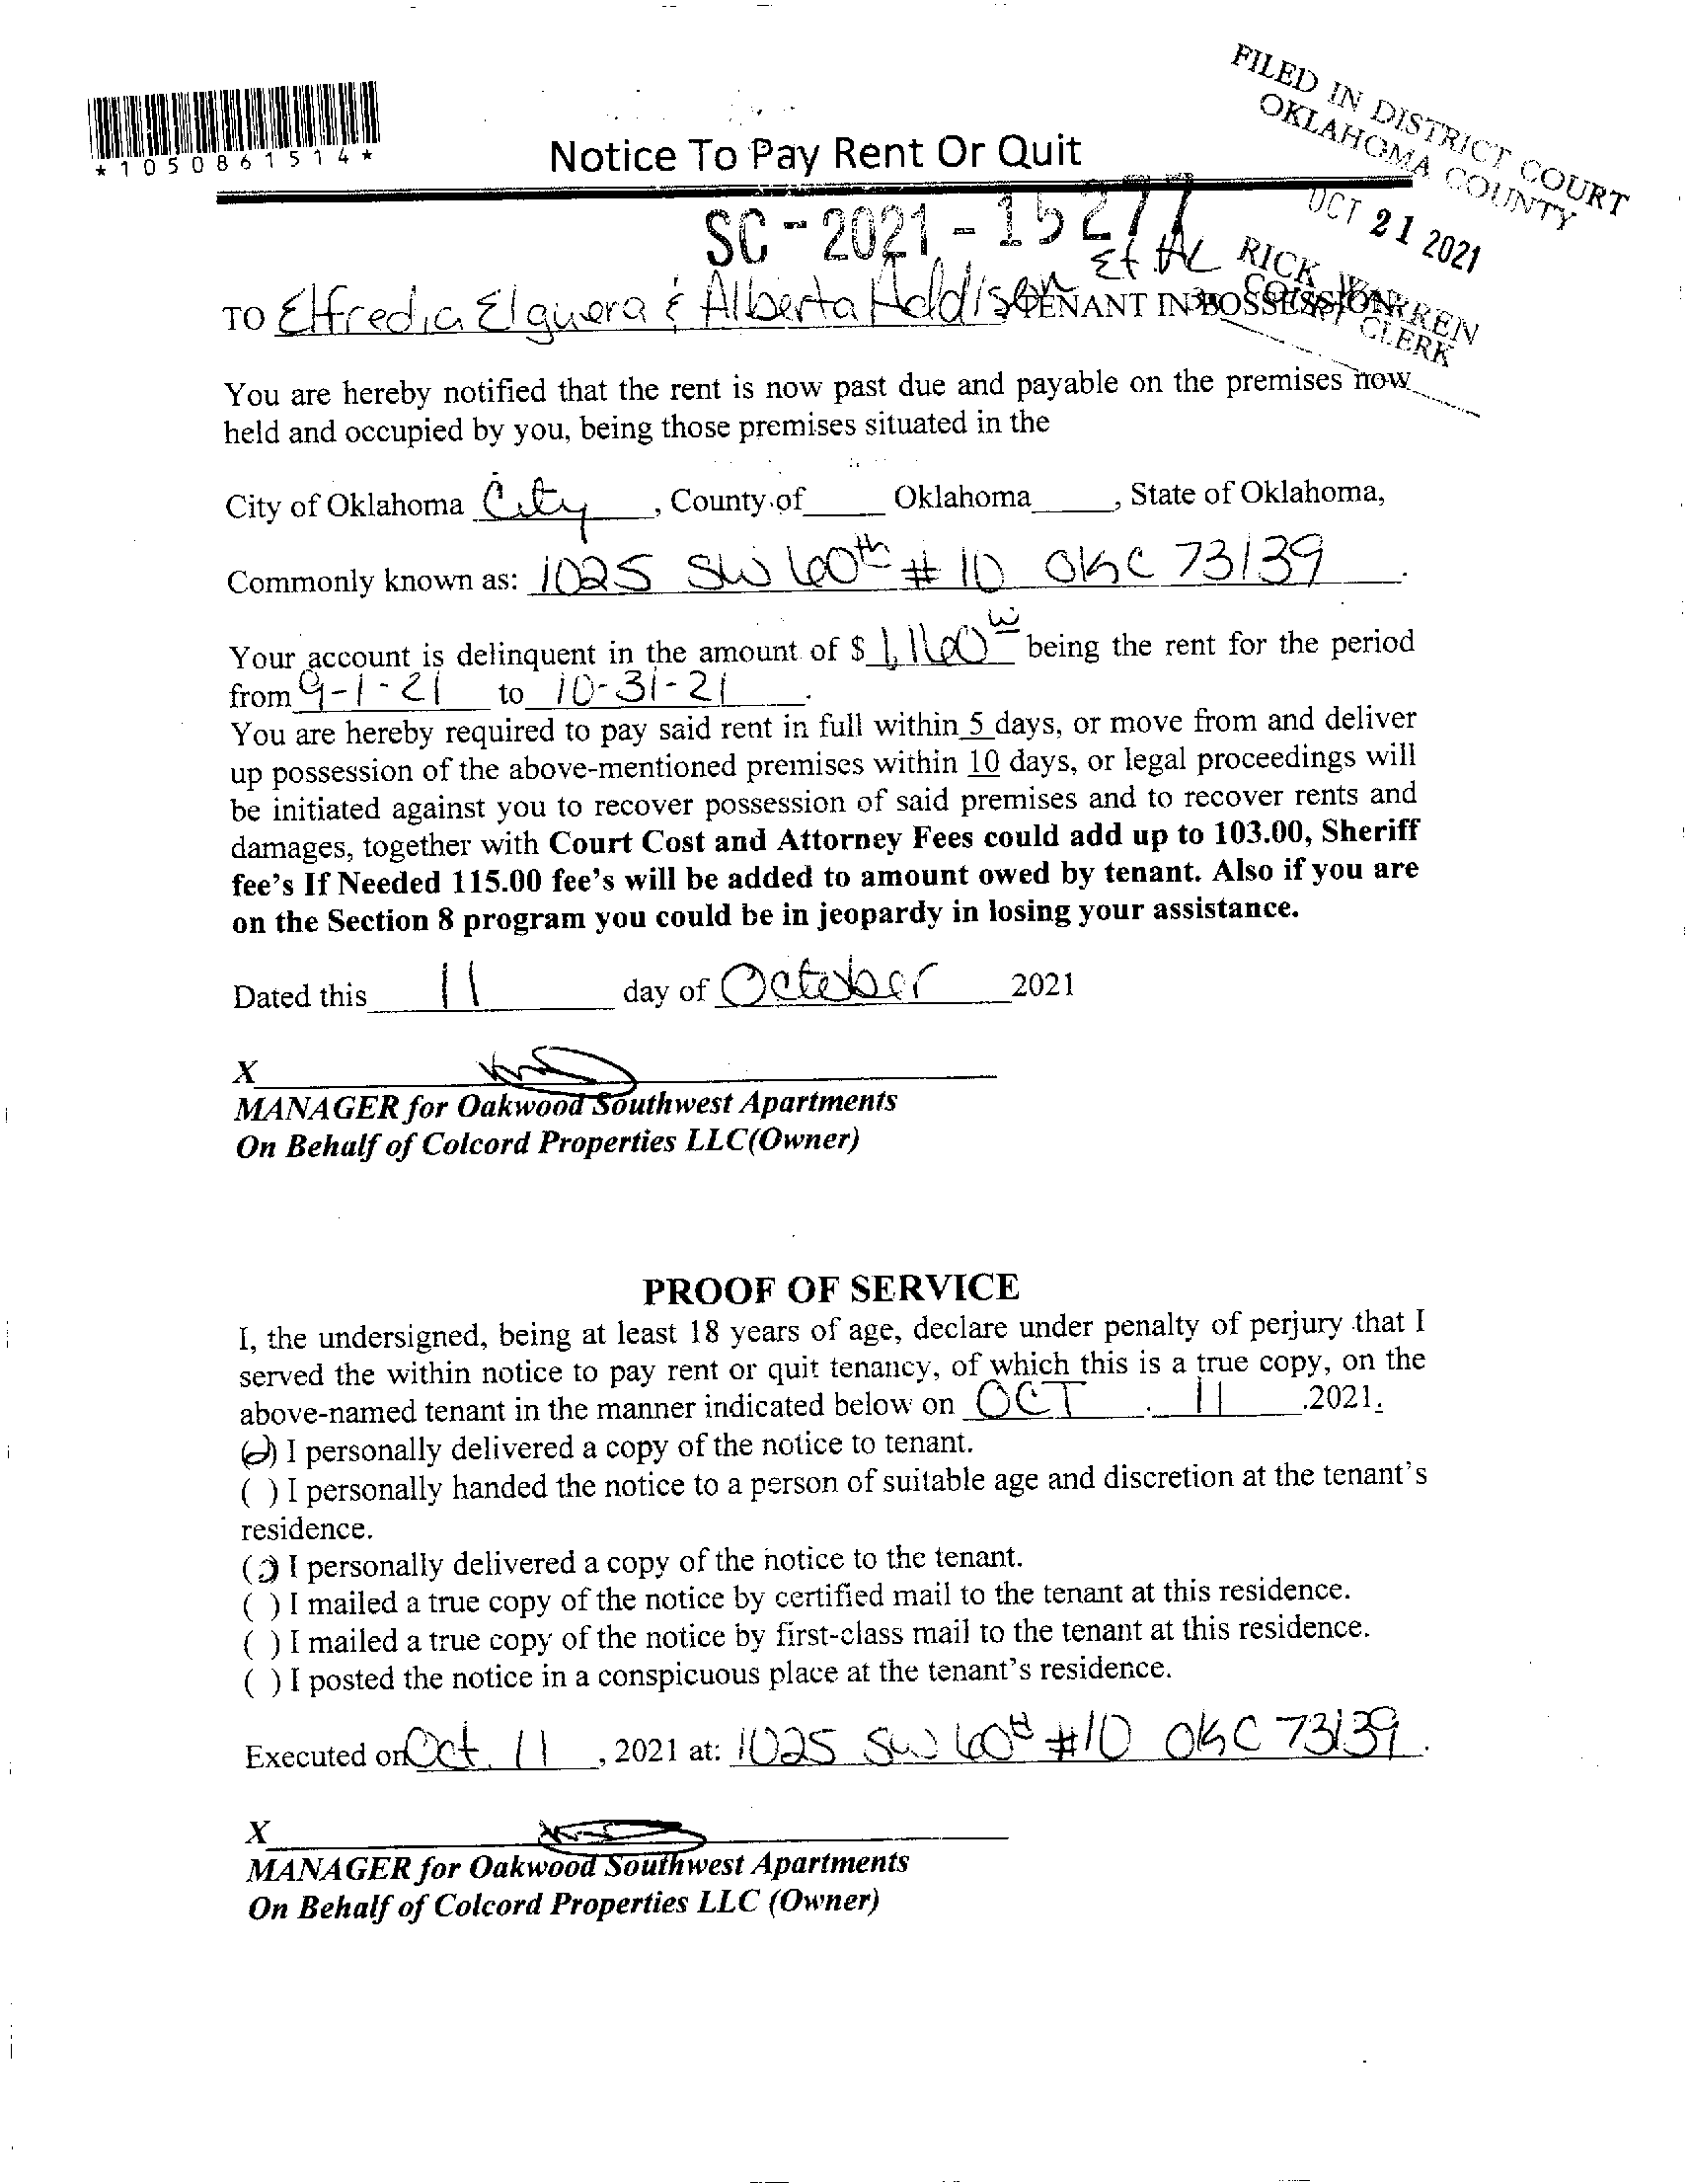 FILED IN DISTRICT COURT
OKLAHOMA COUNTY
OCT 21 2021
RICK WARREN
COURT CLERK
*1050861514*
Notice To Pay Rent Or Quit
SC-2021-15277
TO Elfredia Elguera & Alberta Addison Et Al TENANT IN POSSESSION
You are hereby notified that the rent is now past due and payable on the premises now
held and occupied by you, being those premises situated in the
City of Oklahoma City, County of Oklahoma, State of Oklahoma,
Commonly known as: 1025 SW 60th #10 OKC 73139.
Your account is delinquent in the amount of $ 1,160 being the rent for the period
from 9-1-21 to 10-31-21.
You are hereby required to pay said rent in full within 5 days, or move from and deliver
up possession of the above-mentioned premises within 10 days, or legal proceedings will
be initiated against you to recover possession of said premises and to recover rents and
damages, together with Court Cost and Attorney Fees could add up to 103.00, Sheriff
fee's If Needed 115.00 fee's will be added to amount owed by tenant. Also if you are
on the Section 8 program you could be in jeopardy in losing your assistance.
Dated this 11 day of October 2021
X
MANAGER for Oakwood Southwest Apartments
On Behalf of Colcord Properties LLC(Owner)
PROOF OF SERVICE
I, the undersigned, being at least 18 years of age, declare under penalty of perjury that I
served the within notice to pay rent or quit tenancy, of which this is a true copy, on the
above-named tenant in the manner indicated below on OCT . 11 .2021.
( ) I personally delivered a copy of the notice to tenant.
( ) I personally handed the notice to a person of suitable age and discretion at the tenant's
residence.
( ) I personally delivered a copy of the notice to the tenant.
( ) I mailed a true copy of the notice by certified mail to the tenant at this residence.
( ) I mailed a true copy of the notice by first-class mail to the tenant at this residence.
( ) I posted the notice in a conspicuous place at the tenant's residence.
Executed on Oct. 11, 2021 at: 1025 SW 60th #10 OKC 73139.
X
MANAGER for Oakwood Southwest Apartments
On Behalf of Colcord Properties LLC (Owner)